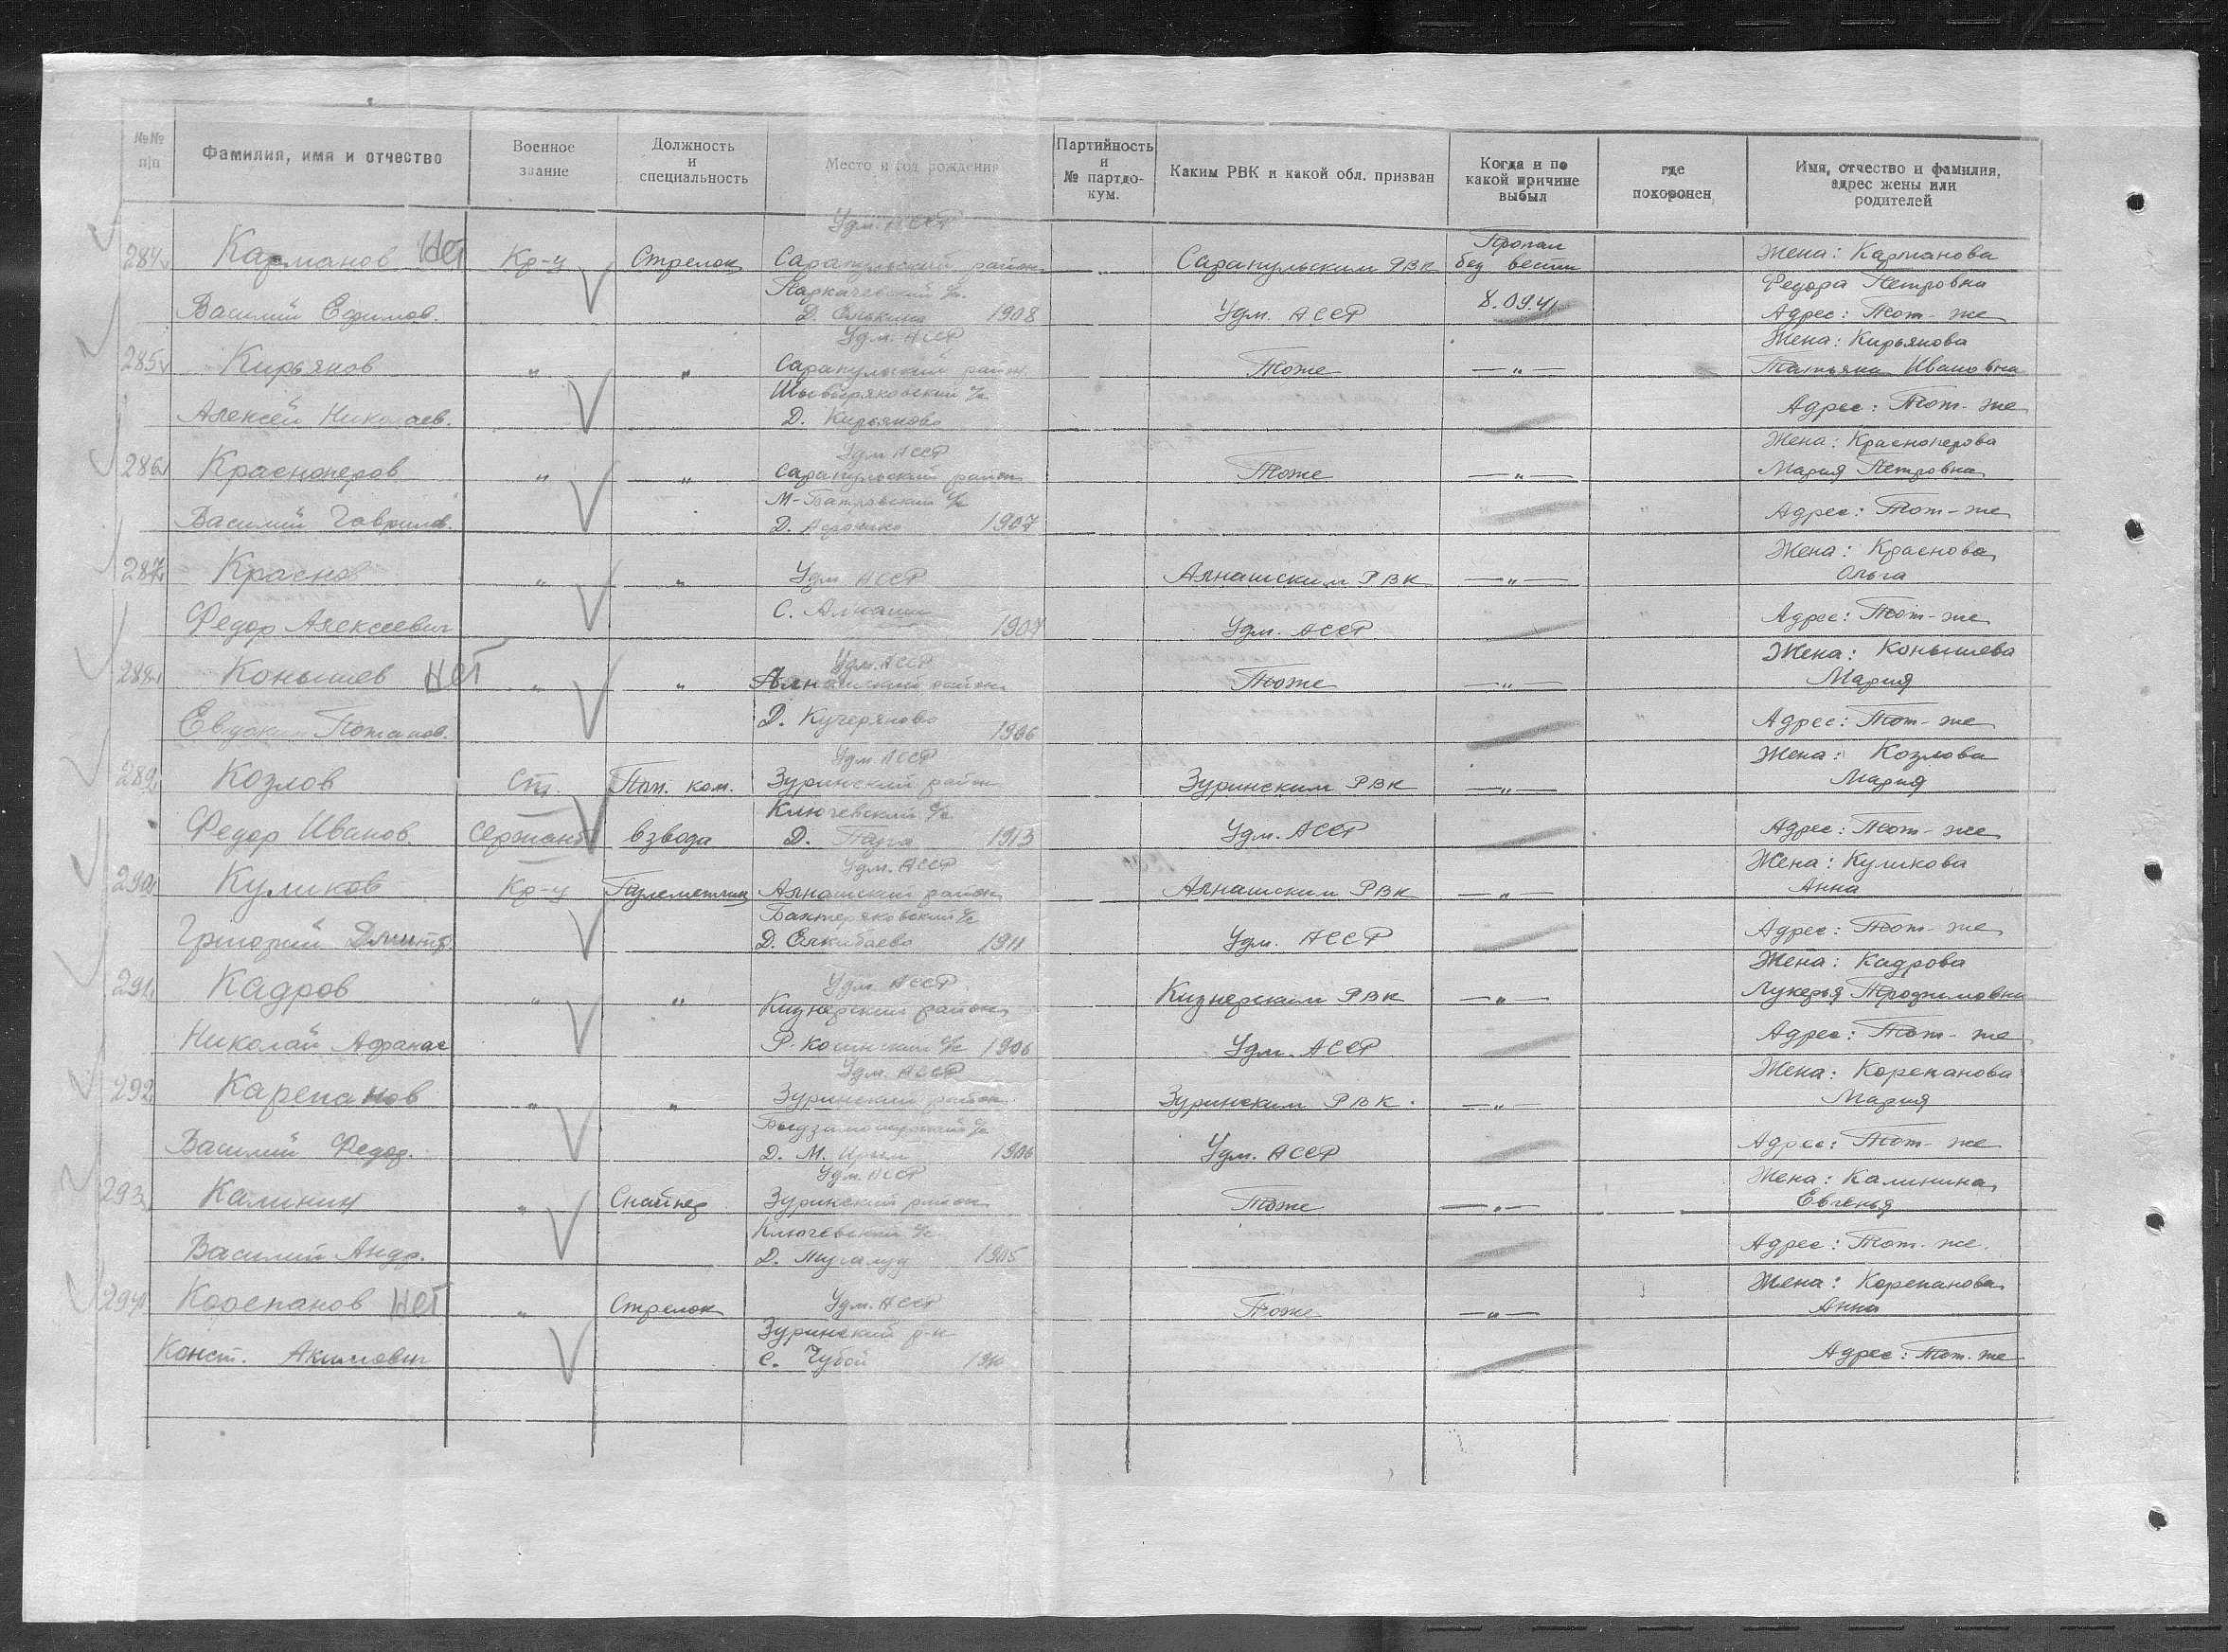 №№ п/п
Фамилия, имя и отчество
Военное звание
Должность и специальность
Место и год рождения
Партийность и № партдокум.
Каким РВК и какой обл. призван
Когда и по какой причине выбыл
где похоронен
Имя, отчество и фамилия, адрес жены или родителей
Удм. АССР
284 Карманов Нет Кр-ц Стрелок Сарапульский район Сарапульским РВК Пропал без вести Жена: Карманова
Федора Петровна
Василий Ефимов. Д. 1908 Удм. АССР 8.09.41 Адрес: Тот-же
Удм. АССР Жена: Кирьянова
285 Кирьянов " " Сарапульский район Тоже — " — Татьяна Ивановна
Алексей Николаев. Д. Кирьяново Адрес: Тот-же
Удм АССР Жена: Красноперова
286 Красноперов " " Сарапульский район Тоже — " — Мария Петровна
Василий Гаврилов. Д. 1907 Адрес: Тот-же
Жена: Краснова
287 Краснов " " Удм АССР Алнашским РВК — " — Ольга
Федор Алексеевич С. Алнаши 1904 Удм. АССР Адрес: Тот-же
Удм. АССР Жена: Конышева
288 Конышев Нет " " Алнашский район Тоже — " — Мария
Евдоким Потапов. Д. Кучеряново 1906 Адрес: Тот-же
Удм АССР Жена: Козлова
289 Козлов Ст. Пом. ком. Зуринский район Зуринским РВК — " — Мария
Ключевский с/с
Федор Иванов. сержант взвода Д. 1913 Удм. АССР Адрес: Тот-же
Удм. АССР Жена: Куликова
290 Куликов Кр-ц Пулеметчик Алнашский район Алнашским РВК — " — Анна
Григорий Дмитр. Д. 1911 Удм. АССР Адрес: Тот-же
Удм АССР Жена: Кадрова
291 Кадров " " Кизнерский район Кизнерским РВК — " — Лукерья Трофимовна
Николай Афанас 1906 Удм. АССР Адрес: Тот-же
Удм. АССР Жена: Корепанова
292 Карепанов " " Зуринский район Зуринским РВК. — " — Мария
Василий Федор. Д. М. 1906 Удм. АССР Адрес: Тот-же
Удм. АССР Жена: Калинина
293 Калинин " Снайпер Зуринский район Тоже — " — Евгенья
Ключевский с/с
Василий Андр. Д. 1905 Адрес: Тот-же.
Жена: Корепанова
294 Корепанов Нет " Стрелок Удм. АССР Тоже — " — Анна
Зуринский р-н
Конст. Акимович С. Чубой Адрес: Тот-же